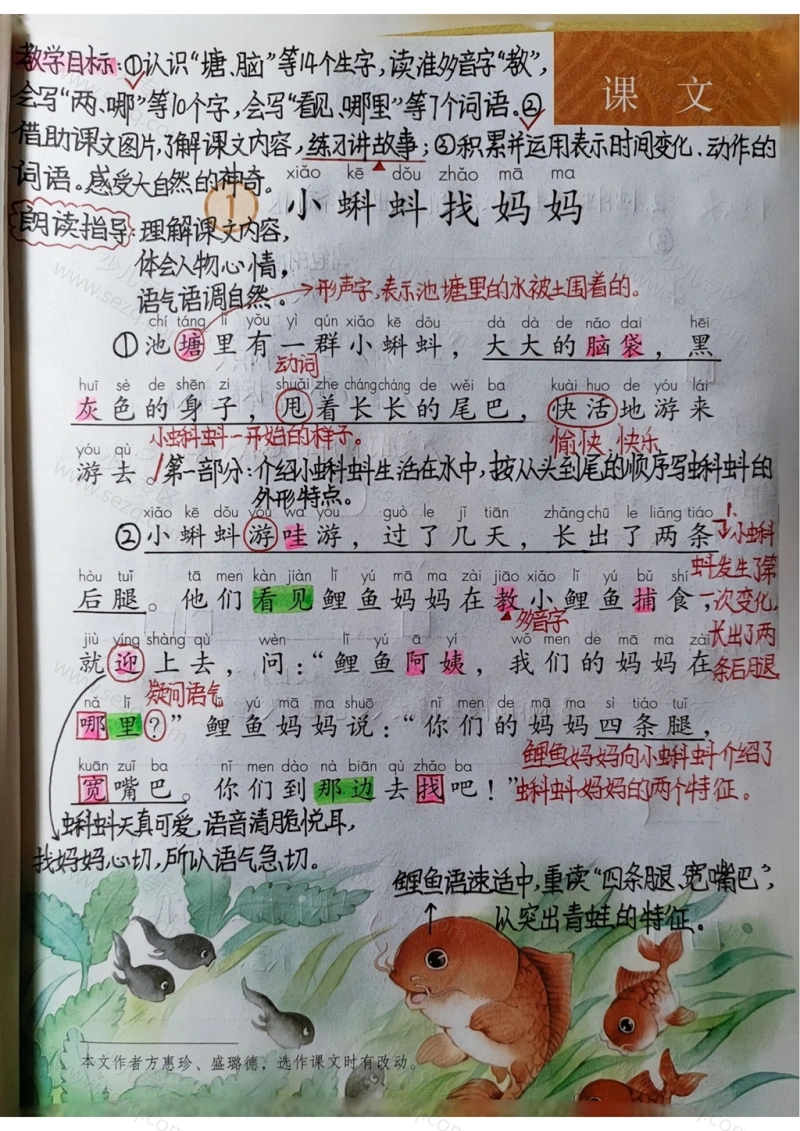 课文
教学目标:①认识“塘、脑”等14个生字,读准多音字“教”,
会写“两、哪”等10个字,会写“看见、哪里”等7个词语。②
借助课文图片,了解课文内容,练习讲故事;③积累并运用表示时间变化、动作的
词语。感受大自然的神奇。
xiǎo kē dǒu zhǎo mā ma
1 小蝌蚪找妈妈
朗读指导:理解课文内容,
体会人物心情,
语气语调自然。
形声字,表示池塘里的水被土围着的。
chí táng lǐ yǒu yì qún xiǎo kē dǒu dà dà de nǎo dai hēi
①池塘里有一群小蝌蚪,大大的脑袋,黑
动词
huī sè de shēn zi shuǎi zhe cháng cháng de wěi ba kuài huo de yóu lái
灰色的身子,甩着长长的尾巴,快活地游来
小蝌蚪一开始的样子。
愉快,快乐
yóu qù
游去。第一部分:介绍小蝌蚪生活在水中,按从头到尾的顺序写蝌蚪的
外形特点。
xiǎo kē dǒu yóu wa yóu guò le jǐ tiān zhǎng chū le liǎng tiáo
②小蝌蚪游哇游,过了几天,长出了两条
1.小蝌
蚪发生了第
一次变化,
长出了两
条后腿
hòu tuǐ tā men kàn jiàn lǐ yú mā ma zài jiāo xiǎo lǐ yú bǔ shí
后腿。他们看见鲤鱼妈妈在教小鲤鱼捕食,
多音字
jiù yíng shàng qù wèn lǐ yú ā yí wǒ men de mā ma zài
就迎上去,问:“鲤鱼阿姨,我们的妈妈在
疑问语气
nǎ lǐ lǐ yú mā ma shuō nǐ men de mā ma sì tiáo tuǐ
哪里?”鲤鱼妈妈说:“你们的妈妈四条腿,
鲤鱼妈妈向小蝌蚪介绍了
蝌蚪妈妈的两个特征。
kuān zuǐ ba nǐ men dào nà biān qù zhǎo ba
宽嘴巴。你们到那边去找吧!”
蝌蚪天真可爱,语音清脆悦耳,
找妈妈心切,所以语气急切。
鲤鱼语速适中,重读“四条腿、宽嘴巴”,
以突出青蛙的特征。
本文作者方惠珍、盛璐德,选作课文时有改动。